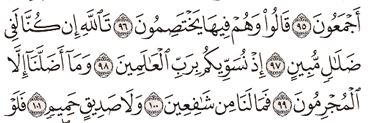 أَجْمَعُونَ ٩٥ قَالُوا۟ وَهُمْ فِيهَا يَخْتَصِمُونَ ٩٦ تَٱللَّهِ إِن كُنَّا لَفِى
ضَلَـٰلٍ مُّبِينٍ ٩٧ إِذْ نُسَوِّيكُم بِرَبِّ ٱلْعَـٰلَمِينَ ٩٨ وَمَآ أَضَلَّنَآ إِلَّا
ٱلْمُجْرِمُونَ ٩٩ فَمَا لَنَا مِن شَـٰفِعِينَ ١٠٠ وَلَا صَدِيقٍ حَمِيمٍ ١٠١ فَلَوْ